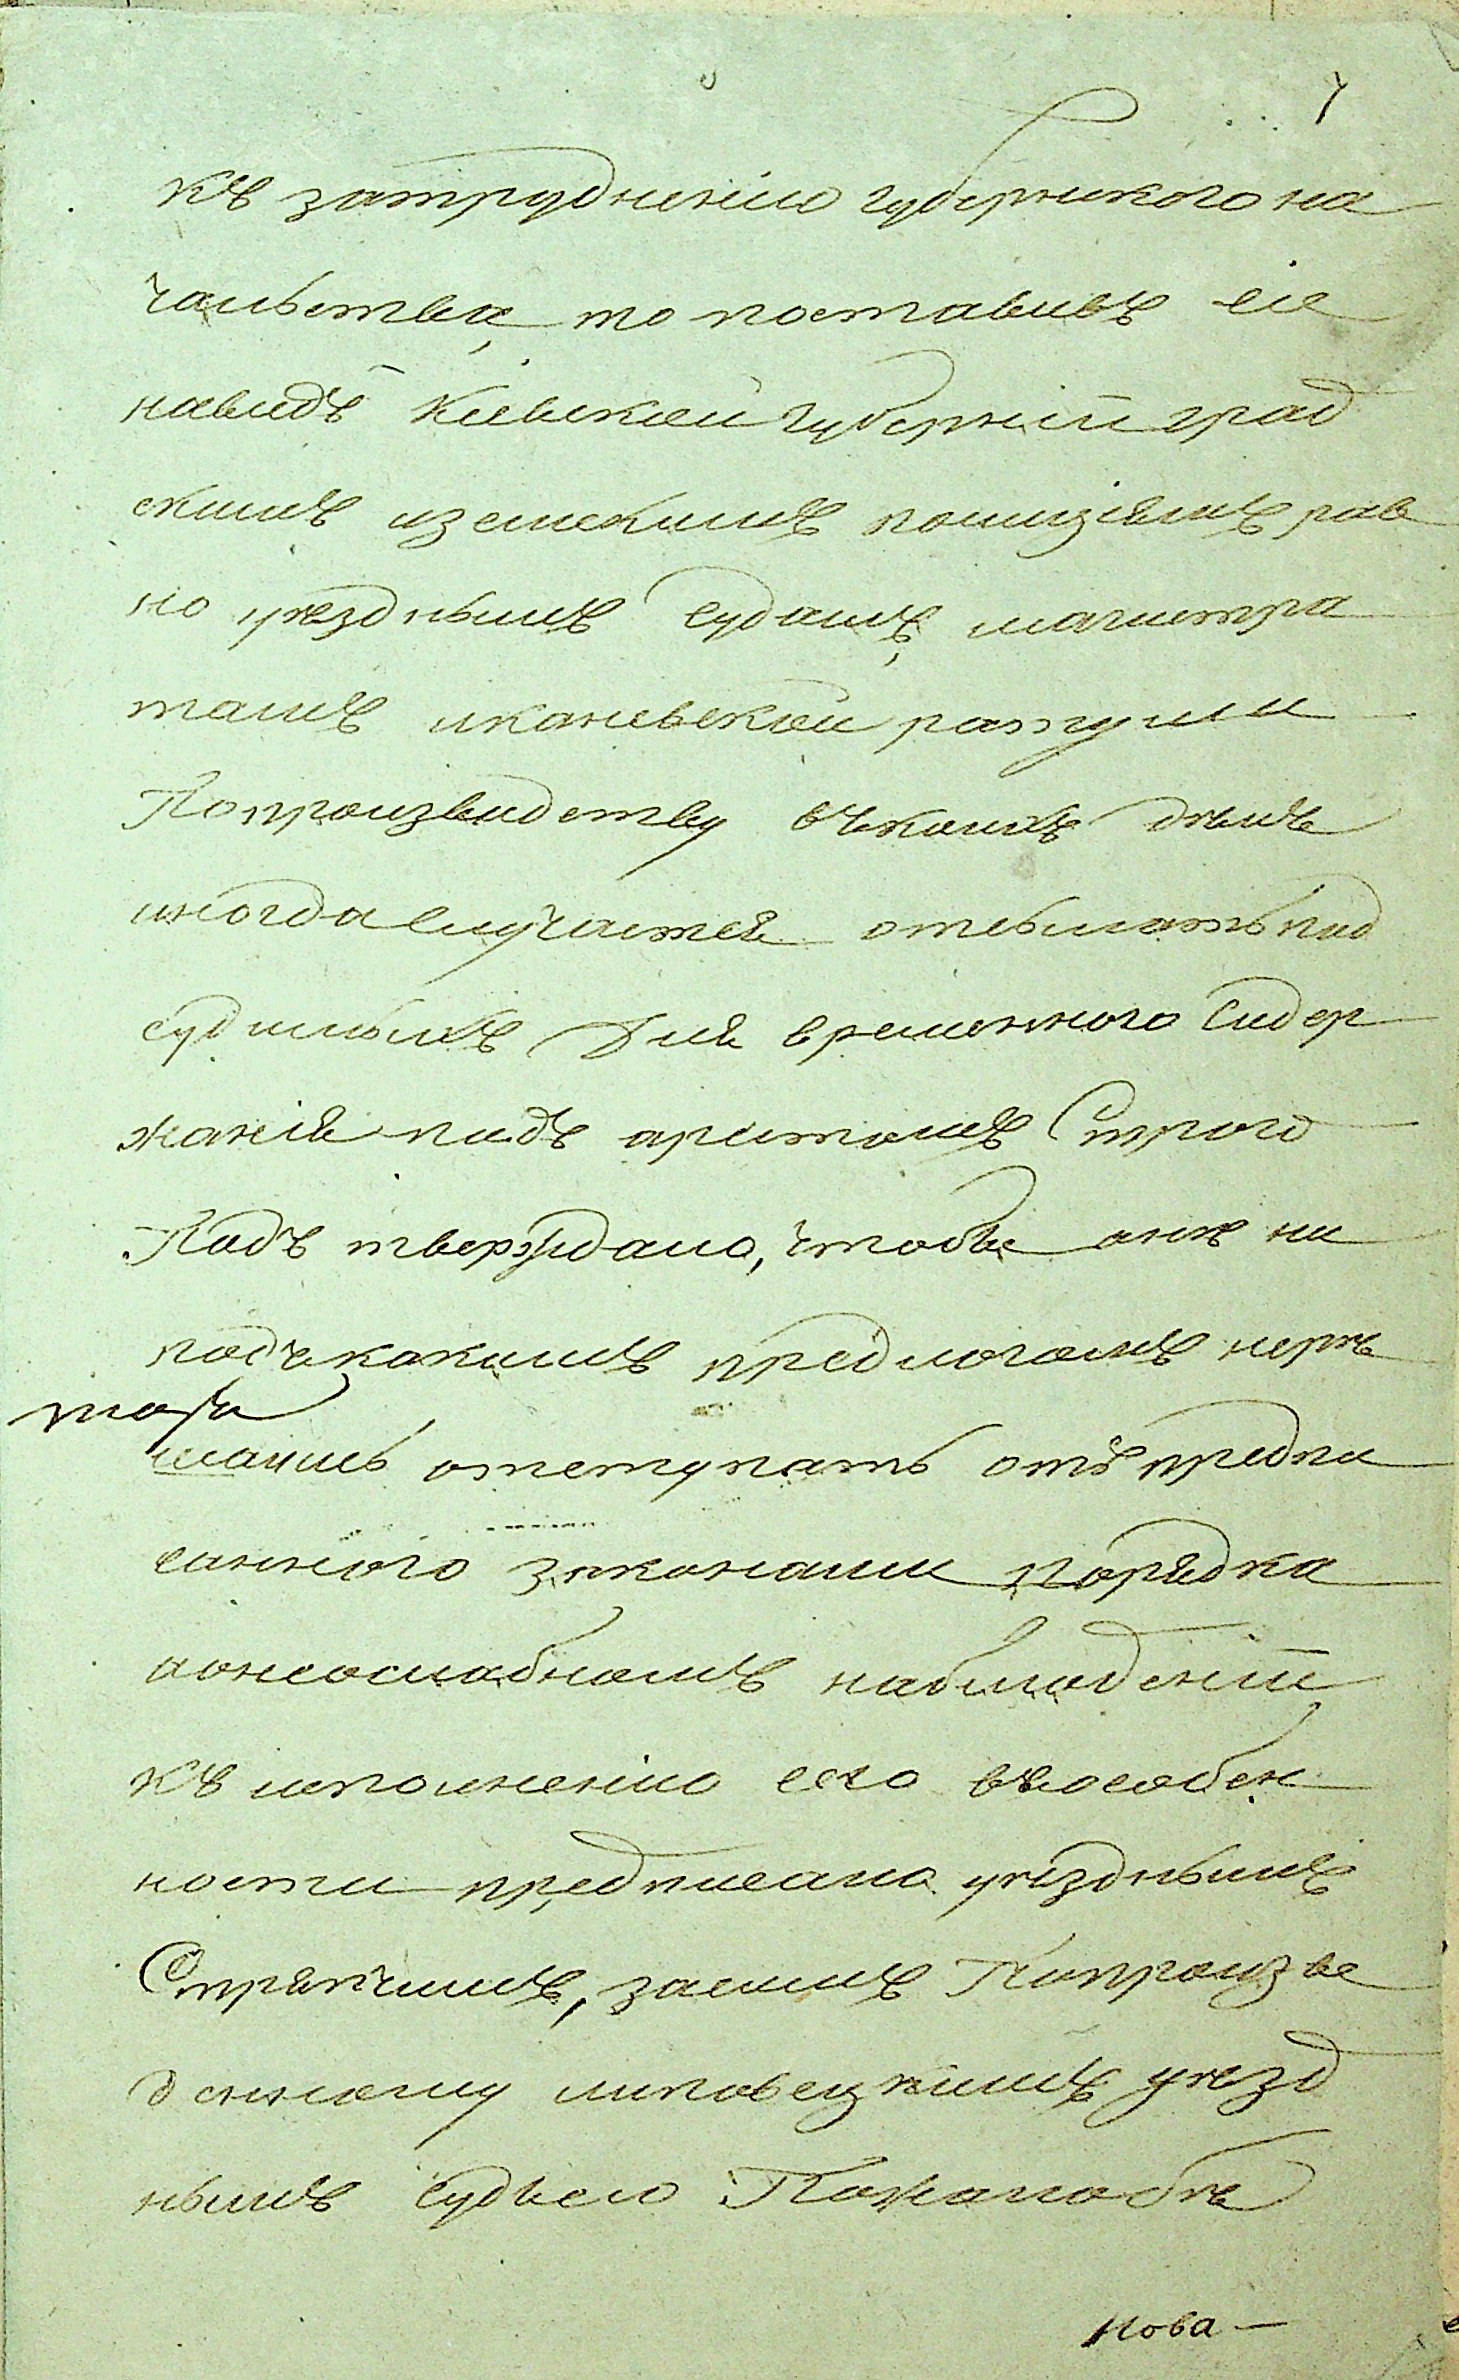 къ затрудненію губернскогона
чальства, то поставивъ сіе
навидъ Кіевскои Губерніи град
скимъ иземскимъ полиціямъ рав
но уезднымъ Судамъ, магистра
тамъ иканевскои ратуши
Попроизводству въкоихъ делъ
иногдаслучается отсылать под
судимыхъ Для временного Содер
жанія подъ арестомъ Строго
Подъ тверждано, чтобы онѣ ни
подъкакимъ предлогомъ неръ
шались отступать отъ предпи
саннаго законами порядка
аонеослабномъ наблюденіи
къ исполненію сего въособен
ности предписано уезднымъ
Стряпчимъ, засимъ Попроизве
денному липовецкимъ уезд
нымъ Судьею Пожалобѣ
нова—